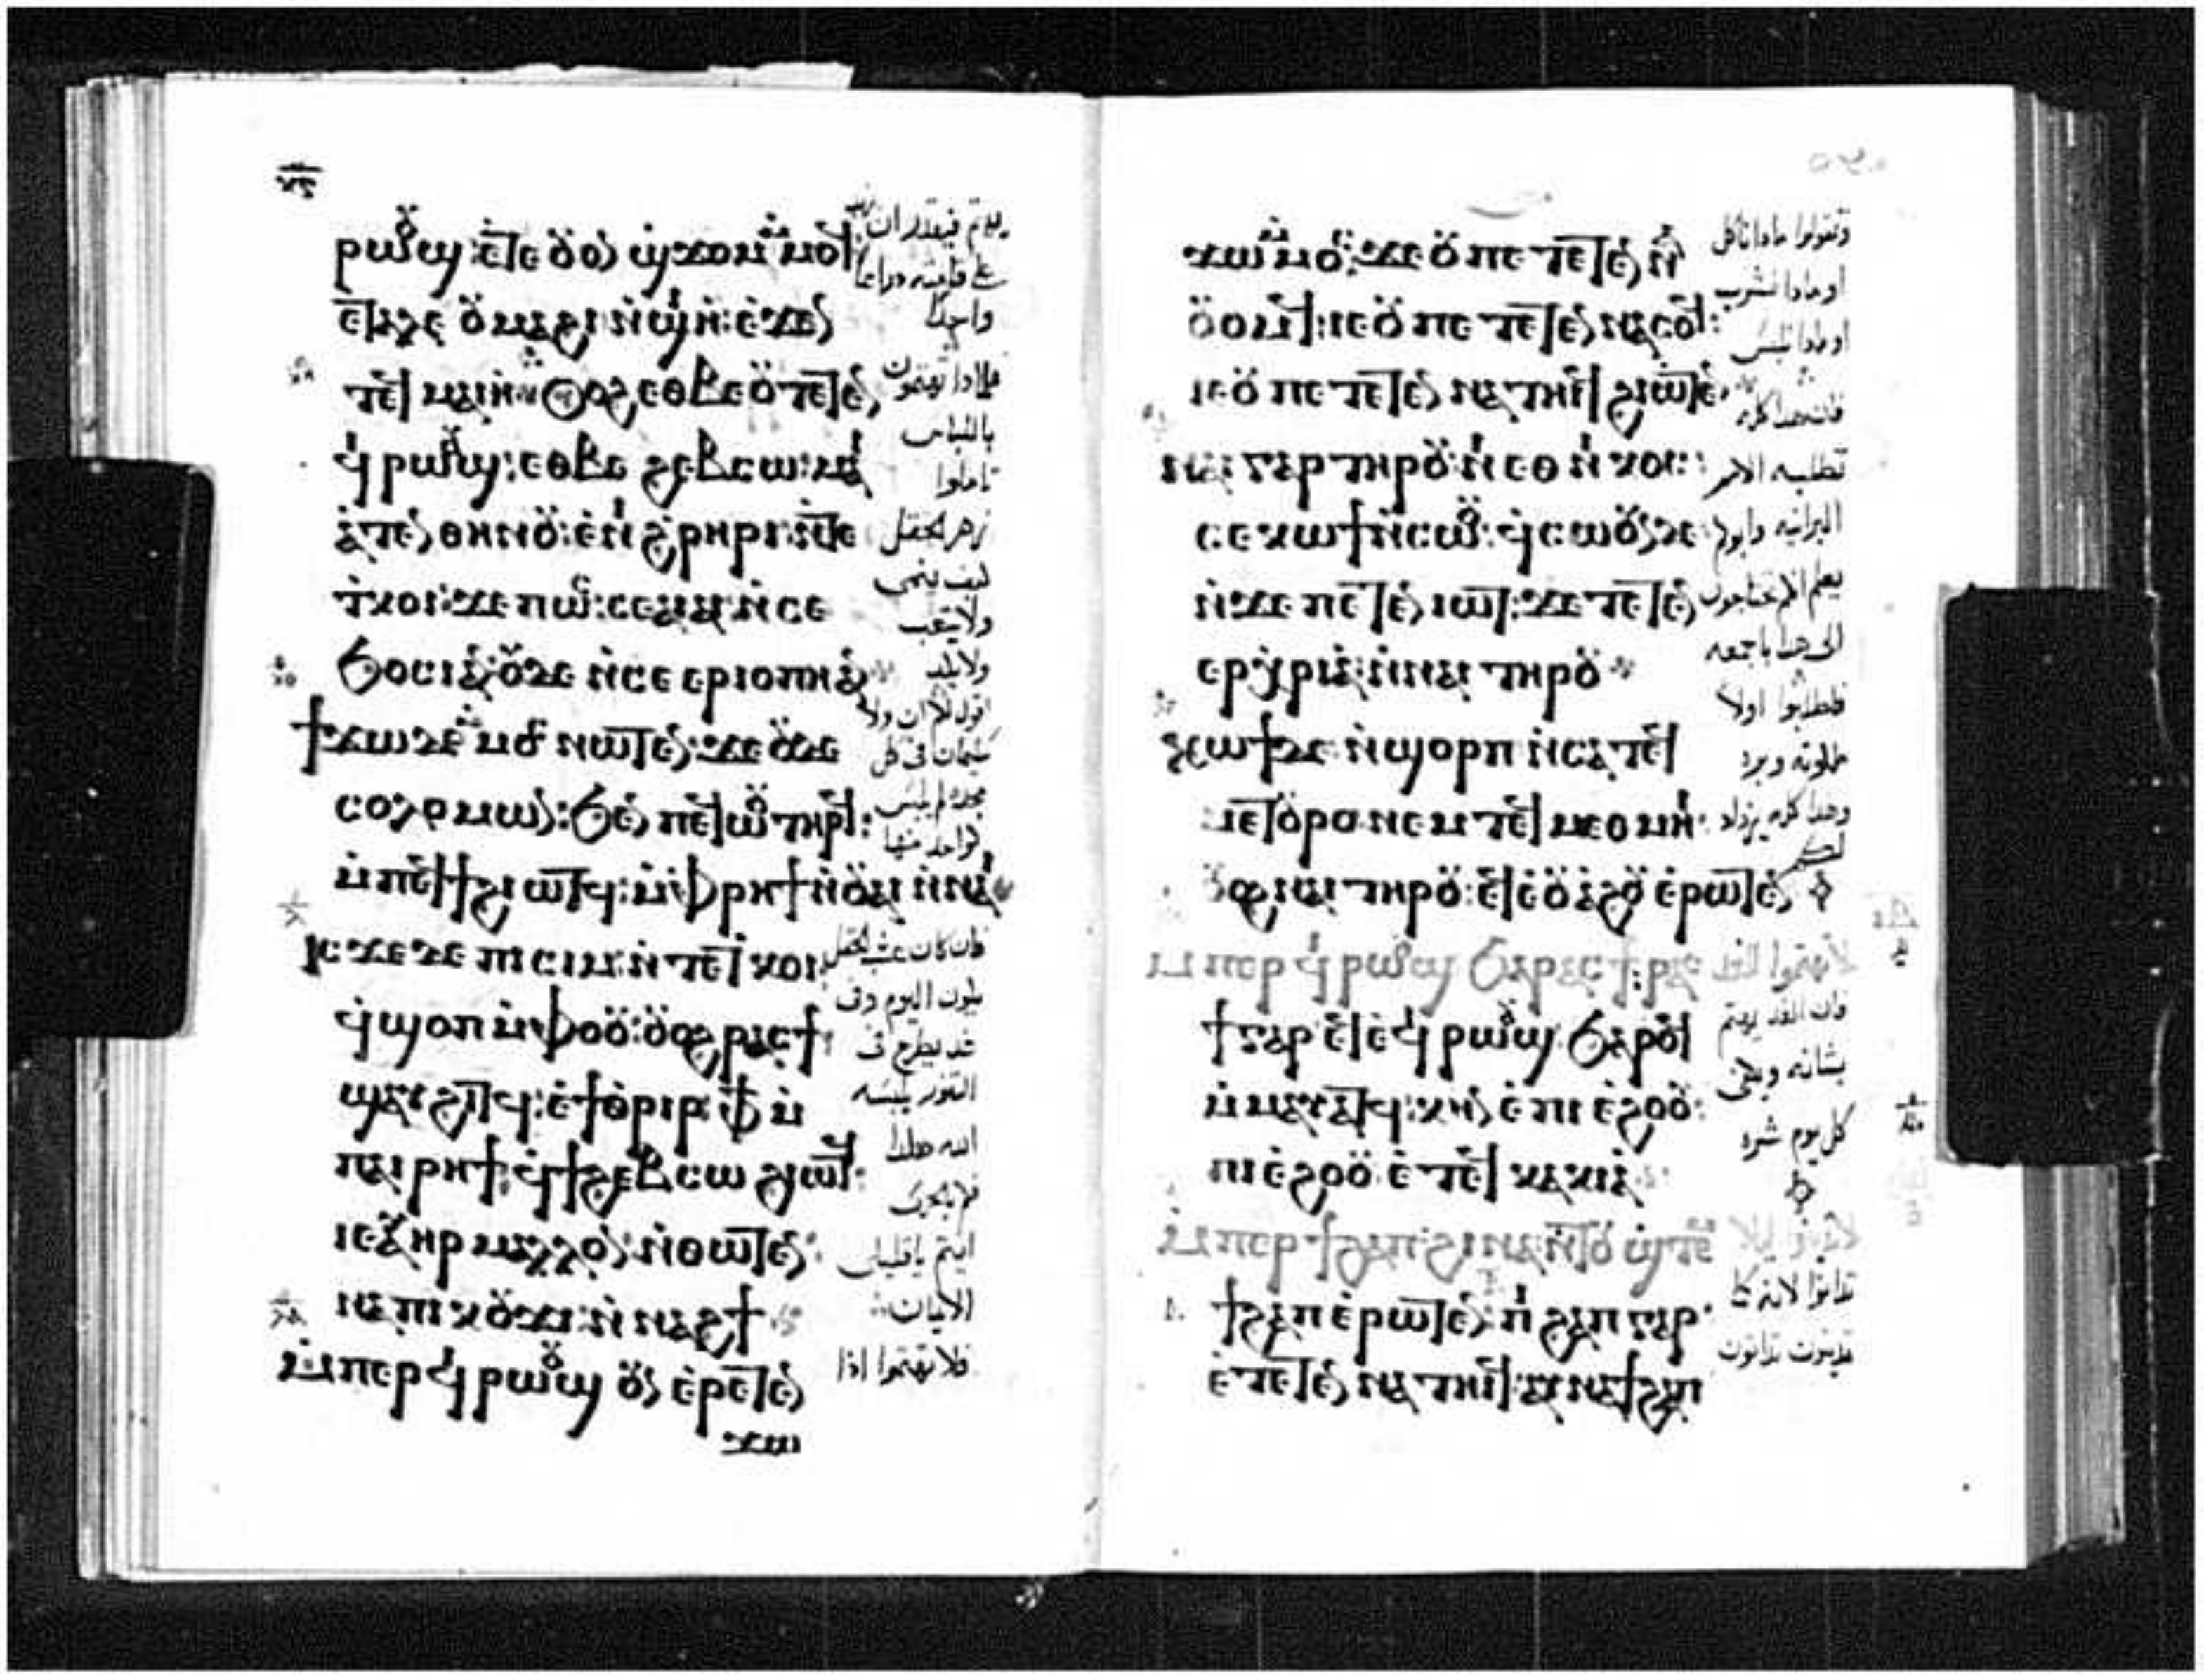 ⲣⲱⲟⲩϣ: ⲉⲧⲉ ⲟⲩⲟⲛ ϣϫⲟⲙ ⲙⲙⲟϥ:
ⲉⲧⲁⲗⲉ ⲟⲩⲙⲁϩⲓ ⲛϣⲓⲏ: ⲉϫⲉⲛ
ⲧⲉϥⲙⲁⲓⲏ: ⲟⲩⲟϩ ⲉⲑⲃⲉ ⲟⲩ ⲧⲉⲧⲉⲛ
ϥⲓ ⲣⲱⲟⲩϣ: ⲉⲑⲃⲉ ϩⲉⲃⲥⲱ: ⲙⲁ
ⲓⲁⲧⲉⲛ ⲑⲏⲛⲟⲩ: ⲉⲛⲓ ϩⲣⲏⲣⲓ: ⲛⲧⲉ
ⲧⲕⲟⲓ: ϫⲉ ⲡⲱⲥ: ⲥⲉⲁⲓⲁⲓ: ⲛⲥⲉ
ϧⲟⲥⲓ ⲁⲛ: ⲟⲩⲇⲉ ⲛⲥⲉ ⲉⲣⲓⲟⲡⲏ ⲁⲛ
ϯϫⲱ ⲇⲉ ⲙⲙⲟⲥ ⲛⲱⲧⲉⲛ: ϫⲉ ⲟⲩⲇⲉ
ⲥⲟⲗⲟⲙⲱⲛ: ϧⲉⲛ ⲡⲉϥⲱⲟⲩ ⲧⲏⲣϥ:
ⲙⲡⲉϥϯϩⲓⲱⲧϥ: ⲙⲫⲣⲏϯ ⲛⲟⲩⲁⲓ ⲛⲛⲁⲓ
ⲓⲥϫⲉ ⲇⲉ ⲡⲓⲥⲓⲙ: ⲛⲧⲉ ⲧⲕⲟⲓ:
ϥϣⲟⲡ ⲙⲫⲟⲟⲩ: ⲟⲩⲟϩ ⲣⲁⲥϯ:
ϣⲁⲩϩⲓⲧϥ: ⲉϯⲑⲣⲓⲣ: ⲫϯ ⲙ
ⲡⲁⲓⲣⲏϯ: ϥϯϩⲉⲃⲥⲱ ϩⲓⲱⲧϥ:
ⲓⲉ ⲁⲩⲏⲣ ⲙⲁⲗⲗⲟⲛ: ⲛⲑⲱⲧⲉⲛ:
ⲛⲁ ⲡⲓⲕⲟⲩϫⲓ: ⲛⲛⲁϩϯ
ⲙⲡⲉⲣϥⲓ ⲣⲱⲟⲩϣ ⲟⲩⲛ ⲉⲣⲉⲧⲉⲛ
ϫⲱ
يهتم فيقدر ان يزيد
على قامته دراعا
واحدا
فلمادا تهتمون
باللباس
تاملوا
زهر الحقل
كيف ينمى
ولا يتعب
اقول لكم ان ولا
سليمان فى كل
مجده لم يلبس
كواحد منها
فان كان عشب الحقل
يكون اليوم وفى
غد يطرح فى
التنور يلبسه
الله هكذا
فكم بالحرى
انتم ياقليلى
الايمان
فلا تهتموا اذا
ϫⲱ ⲙⲙⲟⲥ: ϫⲉ ⲟⲩ ⲡⲉ ⲧⲉⲧⲉⲛⲛⲁ
ⲟⲩⲟⲙϥ: ⲓⲉ ⲟⲩ ⲡⲉ ⲧⲉⲧⲉⲛⲛⲁⲥⲟϥ:
ⲓⲉ ⲟⲩ ⲡⲉ ⲧⲉⲧⲉⲛⲛⲁⲧⲏⲓϥ ϩⲓⲱⲧⲉⲛ
ⲛⲁⲓ ⲅⲁⲣ ⲧⲏⲣⲟⲩ: ⲛⲓⲉⲑⲛⲟⲥ:
ⲥⲉⲕⲱϯ ⲛⲥⲱⲟⲩ: ϥⲥⲱⲟⲩⲛ ⲇⲉ
ⲛϫⲉ ⲡⲉⲧⲉⲛⲓⲱⲧ: ϫⲉ ⲧⲉⲧⲉⲛ
ⲉⲣⲭⲣⲓⲁ: ⲛⲛⲁⲓ ⲧⲏⲣⲟⲩ
ⲕⲱϯ ⲇⲉ ⲛϣⲟⲣⲡ ⲛⲥⲁ ⲧⲉϥ
ⲙⲉⲧⲟⲩⲣⲟ ⲛⲉⲙ ⲧⲉϥⲙⲉⲑⲙⲏⲓ:
ⲟⲩⲟϩ ⲛⲁⲓ ⲧⲏⲣⲟⲩ: ⲉⲩⲉⲟⲩⲁϩⲟⲩ ⲉⲣⲱⲧⲉⲛ
ⲙⲡⲉⲣϥⲓ ⲣⲱⲟⲩϣ ϧⲁ ⲣⲁⲥϯ: ⲣⲁⲥ
ϯ ⲅⲁⲣ ⲉϥⲉϥⲓ ⲣⲱⲟⲩϣ ϧⲁⲣⲟϥ
ⲙⲙⲁⲩⲁⲧϥ: ⲕⲏⲛ ⲉⲡⲓⲉϩⲟⲟⲩ:
ⲡⲓⲉϩⲟⲟⲩ ⲉⲧⲉϥⲕⲁⲕⲓⲁ
ⲙⲡⲉⲣϯϩⲁⲡ: ϩⲓⲛⲁ ⲛⲧⲟⲩϣⲧⲉⲙ
ϯϩⲁⲡ ⲉⲣⲱⲧⲉⲛ: ⲡⲓϩⲁⲡ ⲅⲁⲣ
ⲉⲧⲉⲧⲉⲛⲛⲁⲧⲏⲓϥ: ⲁⲩⲛⲁϯϩⲁⲡ
وتقولوا مادا ناكل
او مادا نشرب
او مادا نلبس
فان هدا كله
تطلبه الامم
البرانيه وابوكم
يعلم انكم تحتاجون
الى هدا باجمعه
فطلبوا اولا
ملكوته وبره
وهدا كله يزداد
لكم
لا تهتموا للغد
فان الغد يهتم
بشانه ويكفى
كل يوم شره
لا تدينوا ليلا
تدانوا لانه كما
تدينون تدانون